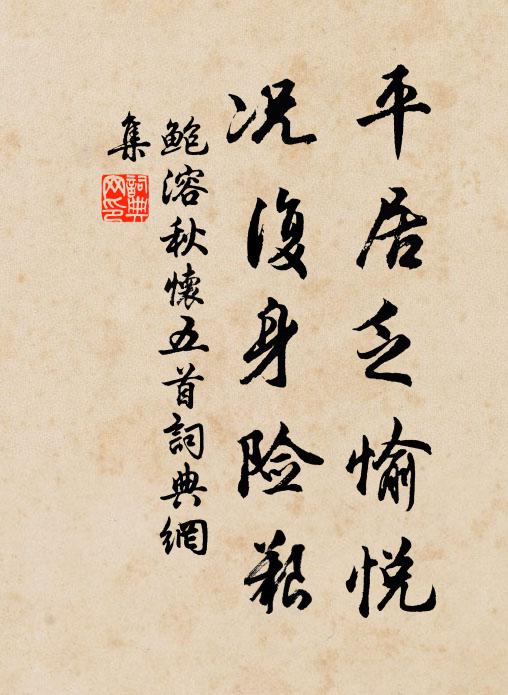 平居乏愉悦
况復身险艱
鲍溶秋懷五首詞典網
集
詞典
网印